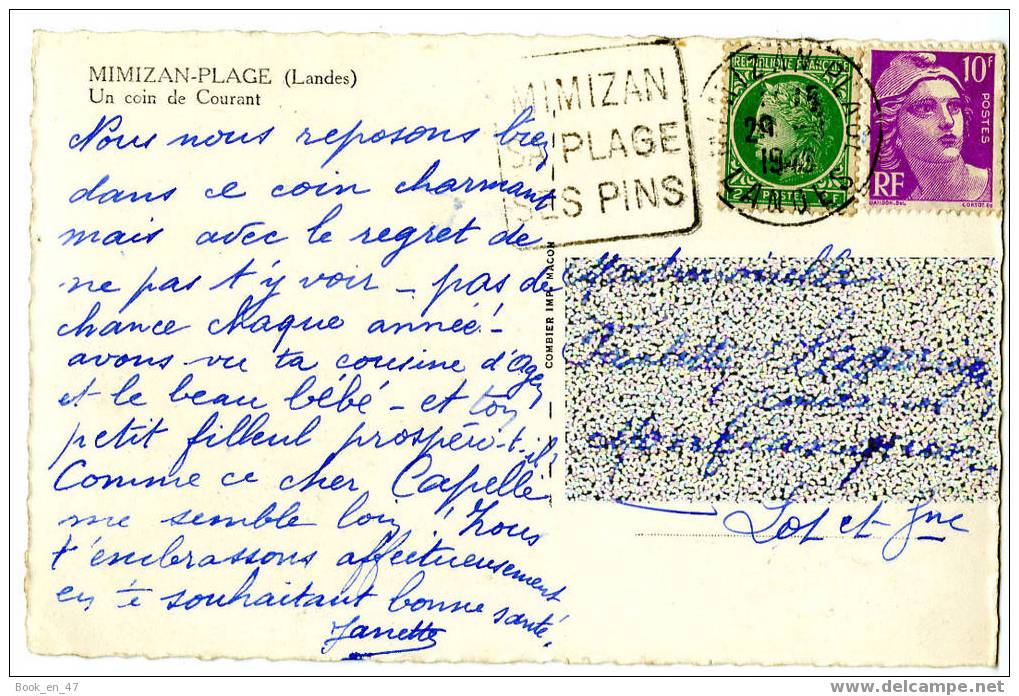 MIMIZAN-PLAGE (Landes)
Un coin de Courant
Nous nous reposons bien
dans ce coin charmant
mais avec le regret de
ne pas t'y voir – pas de
chance chaque année! –
avons vu ta cousine d'Agen
et le beau bébé – et ton
petit filleul prospère-t-il?
Comme ce cher Capelle
me semble loin! Nous
t'embrassons affectueusement
en te souhaitant bonne santé.
Janette
MIMIZAN
SA PLAGE
SES PINS
REPUBLIQUE FRANÇAISE
2 POSTES 2F
29
LANDES
10F
POSTES
RF
GANDON.DEL
COMBIER IMP. MACON
Mademoiselle
Lot et Gne
Book_en_47
www.delcampe.net